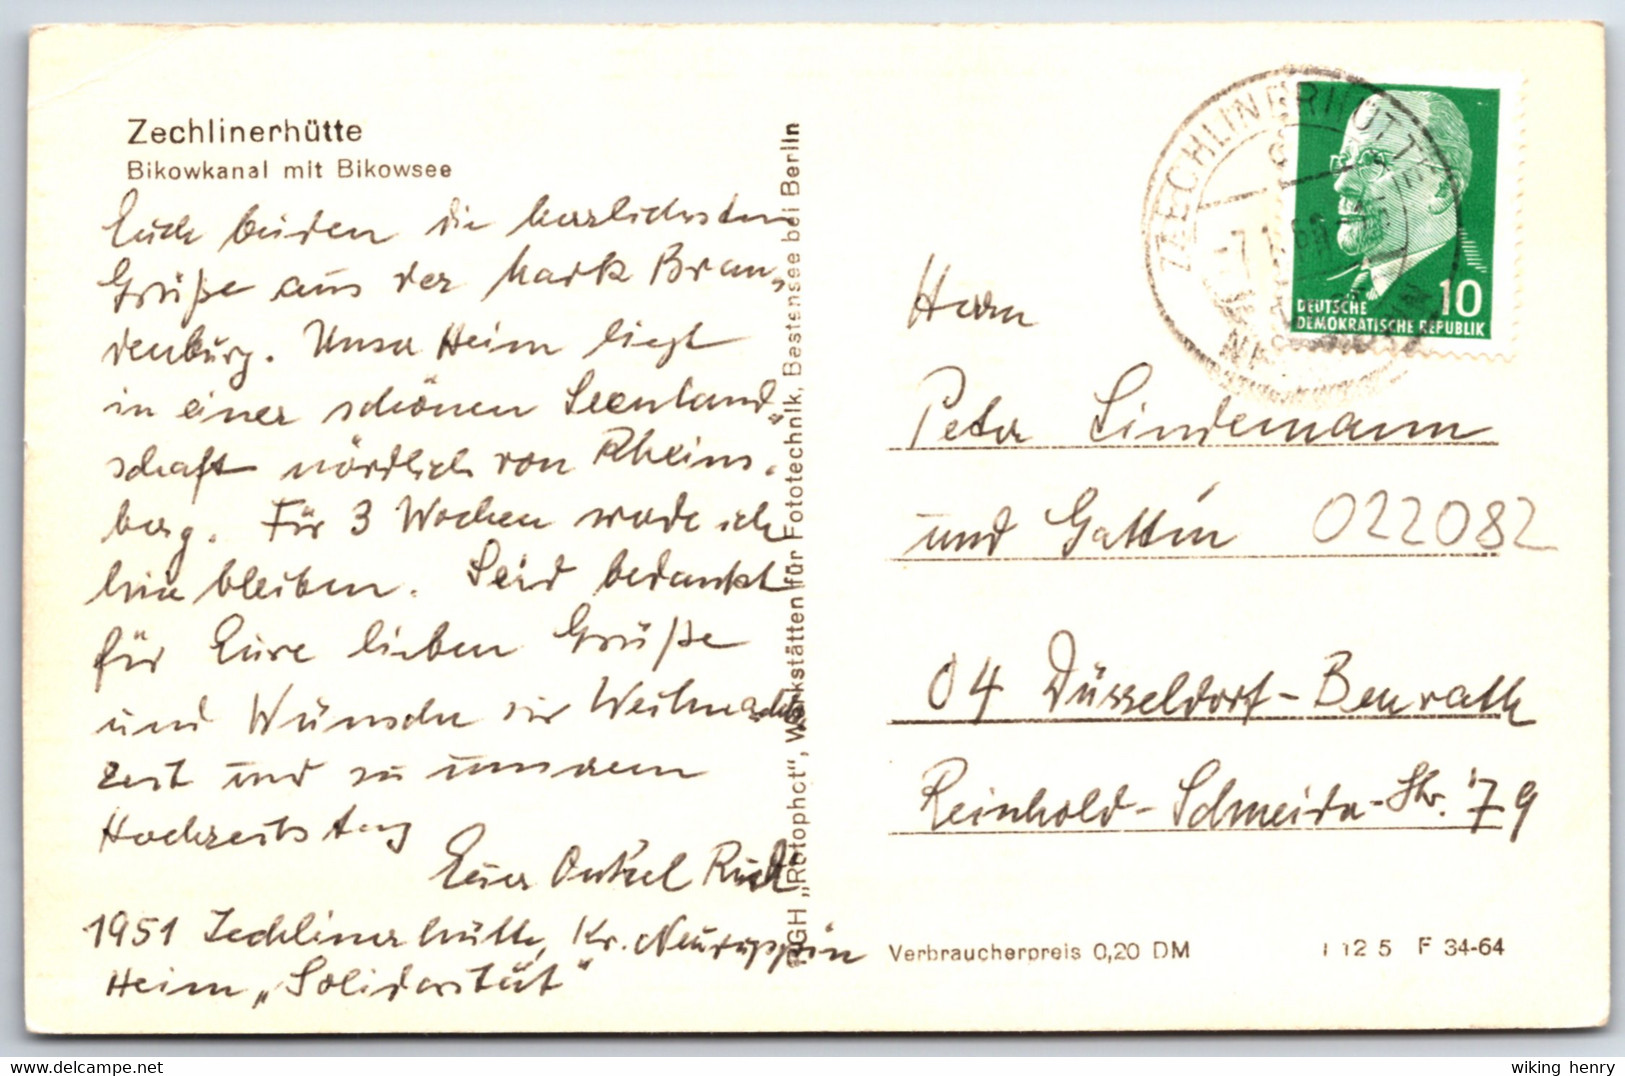 Zechlinerhütte
Bikowkanal mit Bikowsee
Euch beiden die herzlichsten
Grüße aus der Mark Bran-
denburg. Unser Heim liegt
in einer schönen Seenland-
schaft nördlich von Rheins-
berg. Für 3 Wochen werde ich
hier bleiben. Seid bedankt
für Eure lieben Grüße
und Wünsche zur Weihnachts
zeit und zu unserem
Hochzeitstag
Euer Onkel Rudi
1951 Zechlinerhütte, Kr. Neuruppin
Heim „Solidarität"
PGH „Rotophot", Werkstätten für Fototechnik, Bestensee bei Berlin
ZECHLINERHÜTTE
DEUTSCHE
DEMOKRATISCHE REPUBLIK
10
Herrn
Peter Lindemann
und Gattin 022082
04 Düsseldorf-Benrath
Reinhold-Schneider-Str. 79
Verbraucherpreis 0,20 DM
I 12 5 F 34-64
wiking henry